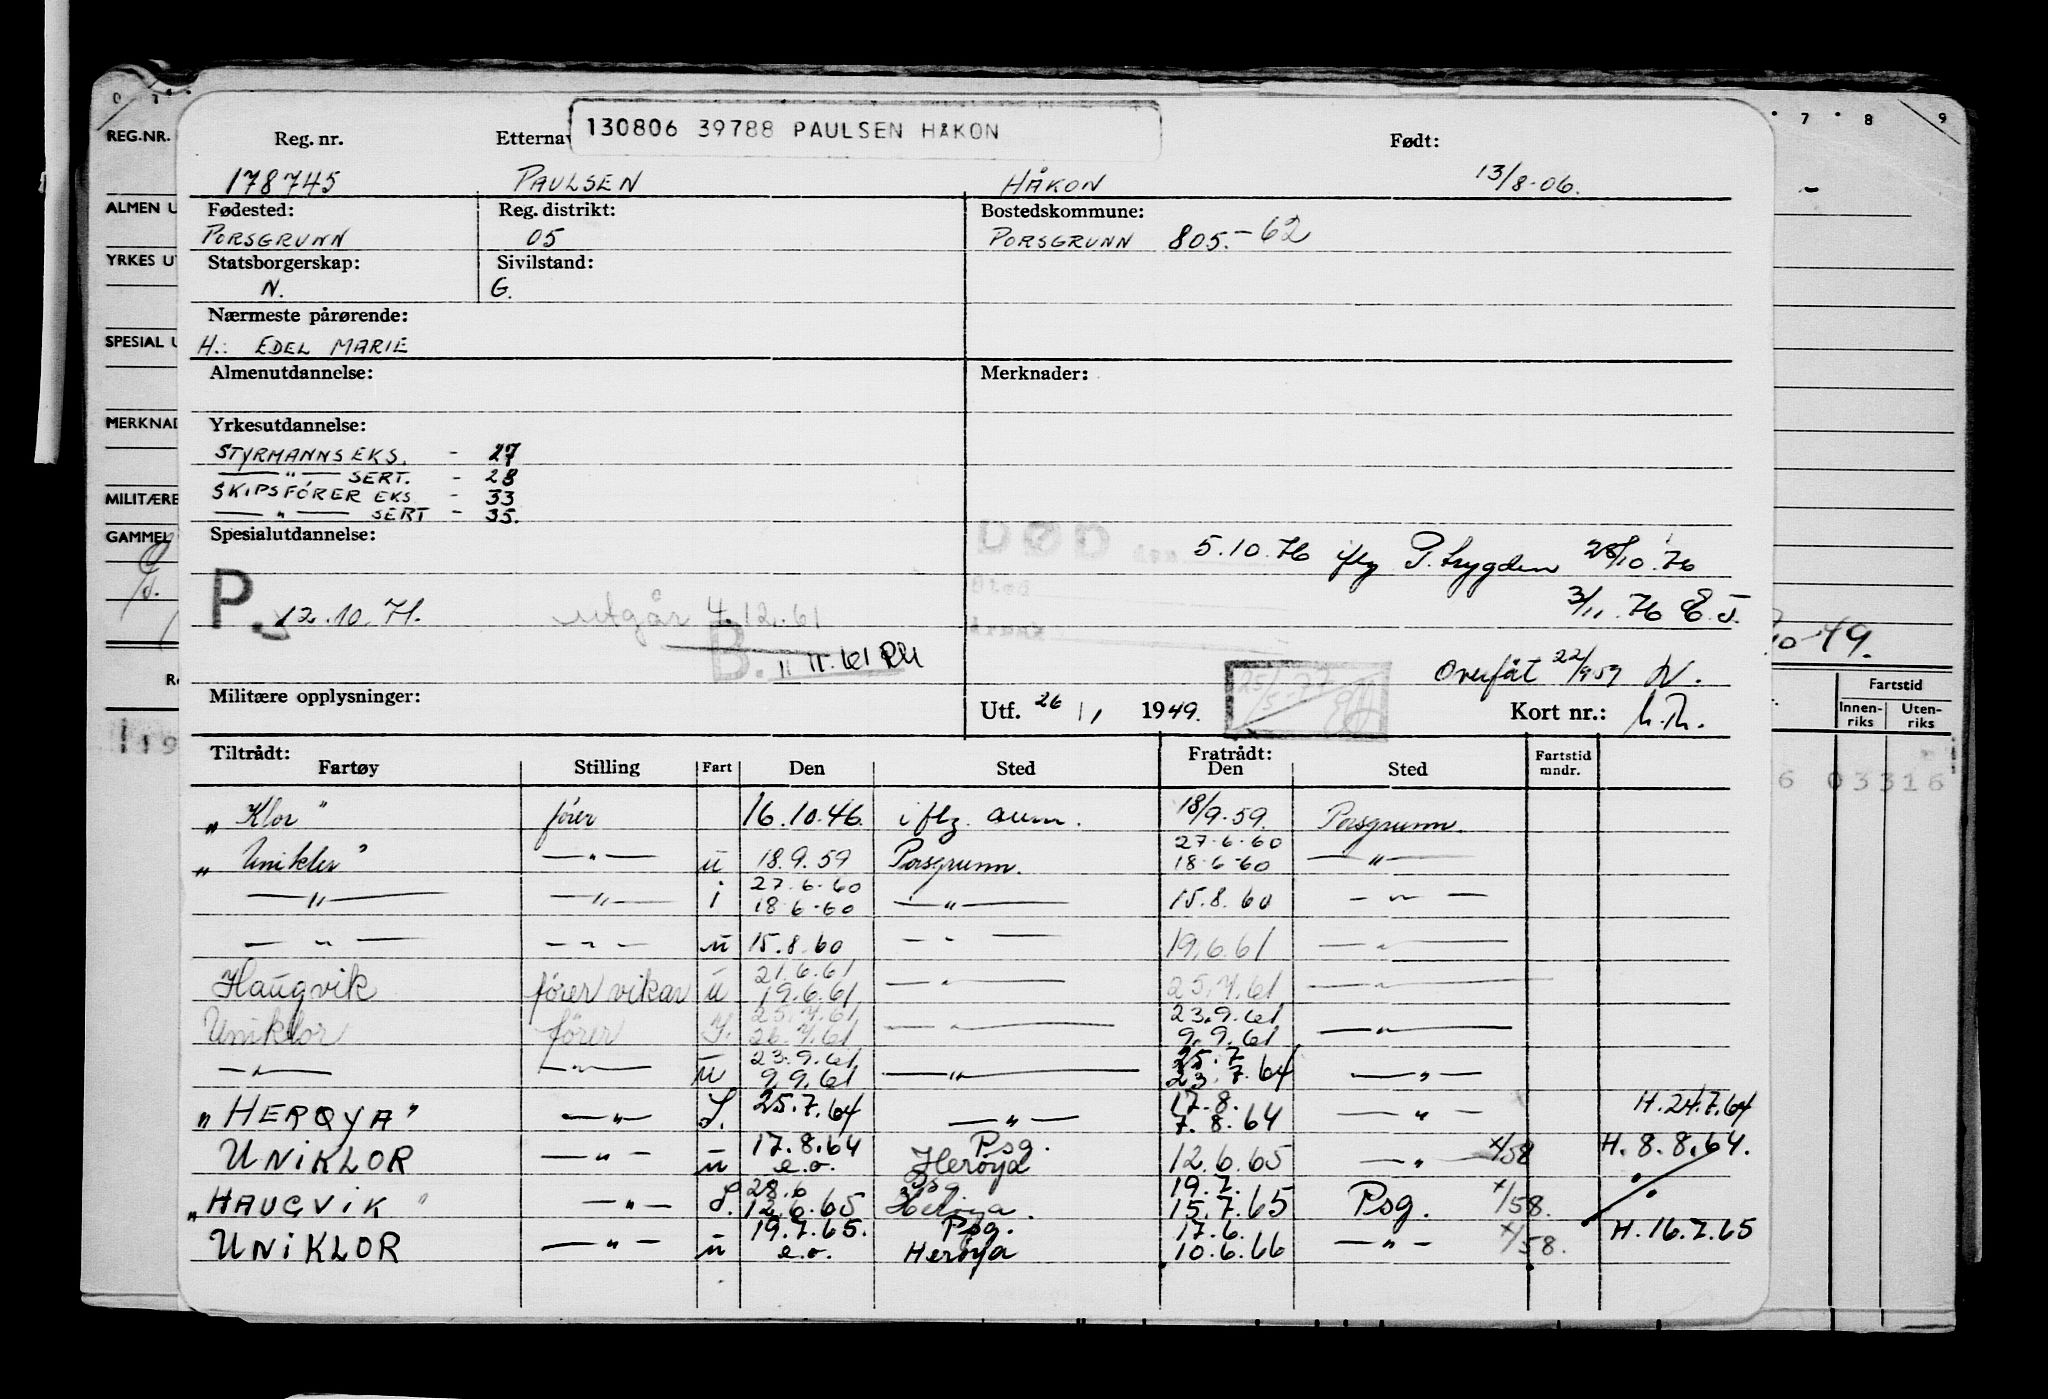 0 1 7 8 9
130806 39788 PAULSEN HÅKON
REG.NR. Reg. nr. Etterna Født:
178745 PAULSEN HÅKON 13/8-06.
ALMEN U Fødested: Reg. distrikt: Bostedskommune:
PORSGRUNN 05 PORSGRUNN 805.-62
YRKES UT Statsborgerskap: Sivilstand:
N. G.
Nærmeste pårørende:
SPECIAL U H.: EDEL MARIE
Almenutdannelse: Merknader:
MERKNAD Yrkesutdannelse:
STYRMANNSEKS. - 27
— " — SERT. - 28
MILITÆRE SKIPSFÖRER EKS - 33
— " — SERT - 35.
GAMMEL Spesialutdannelse:
DØD den 5.10.76 iflg P.trygden 28/10.76
Sted
P. 12.10.71. utgår 4.12.61 3/11.76 E.J.
Årsak
10-49.
B. 11.11.61
Overført 22/9 59
25/5-77
Militære opplysninger: Utf. 26/1 1949. Kort nr.:
Fartstid
Innen-riks Uten-riks
19
6 03316
Tiltrådt: Fratrådt:
Fartøy Stilling Fart Den Sted Den Sted Fartstid mndr.
"Klor" fører 16.10.46. iflg. anm. 18/9.59. Porsgrunn.
27.6.60
"Uniklor" — " — u 18.9.59 Porsgrunn. 18.6-60 — " —
27.6.60
— " — — " — i 18.6.60 — " — 15.8.60 — " —
— " — — " — u 15.8.60 — " — 19.6.61 — " —
21.6.61
Haugvik fører vikar u 19.6.61 — " — 25.7.61 — " —
25.7.61 23.9.61
Uniklor fører S. 26.7.61 — " — 9.9.61 — " —
23.9.61 25.7
— " — — " — u 9.9.61 — " — 23.7.64 — " —
17.8.
"HERØYA" — " — S. 25.7.64 — " — 7.8.64 — " — H.24.7.64
17.8.64 Psg.
UNIKLOR — " — u e.o. Herøya 12.6.65 — " — x/58 H.8.8.64.
28.6 Psg 19.7.
"HAUGVIK" — " — S. 12.6.65 Herøya. 15.7.65 Psg. x/58.
19.7.65. Psg. 17.6.
UNIKLOR — " — u e.o. Herøya 10.6.66 — " — x/58. H.16.7.65